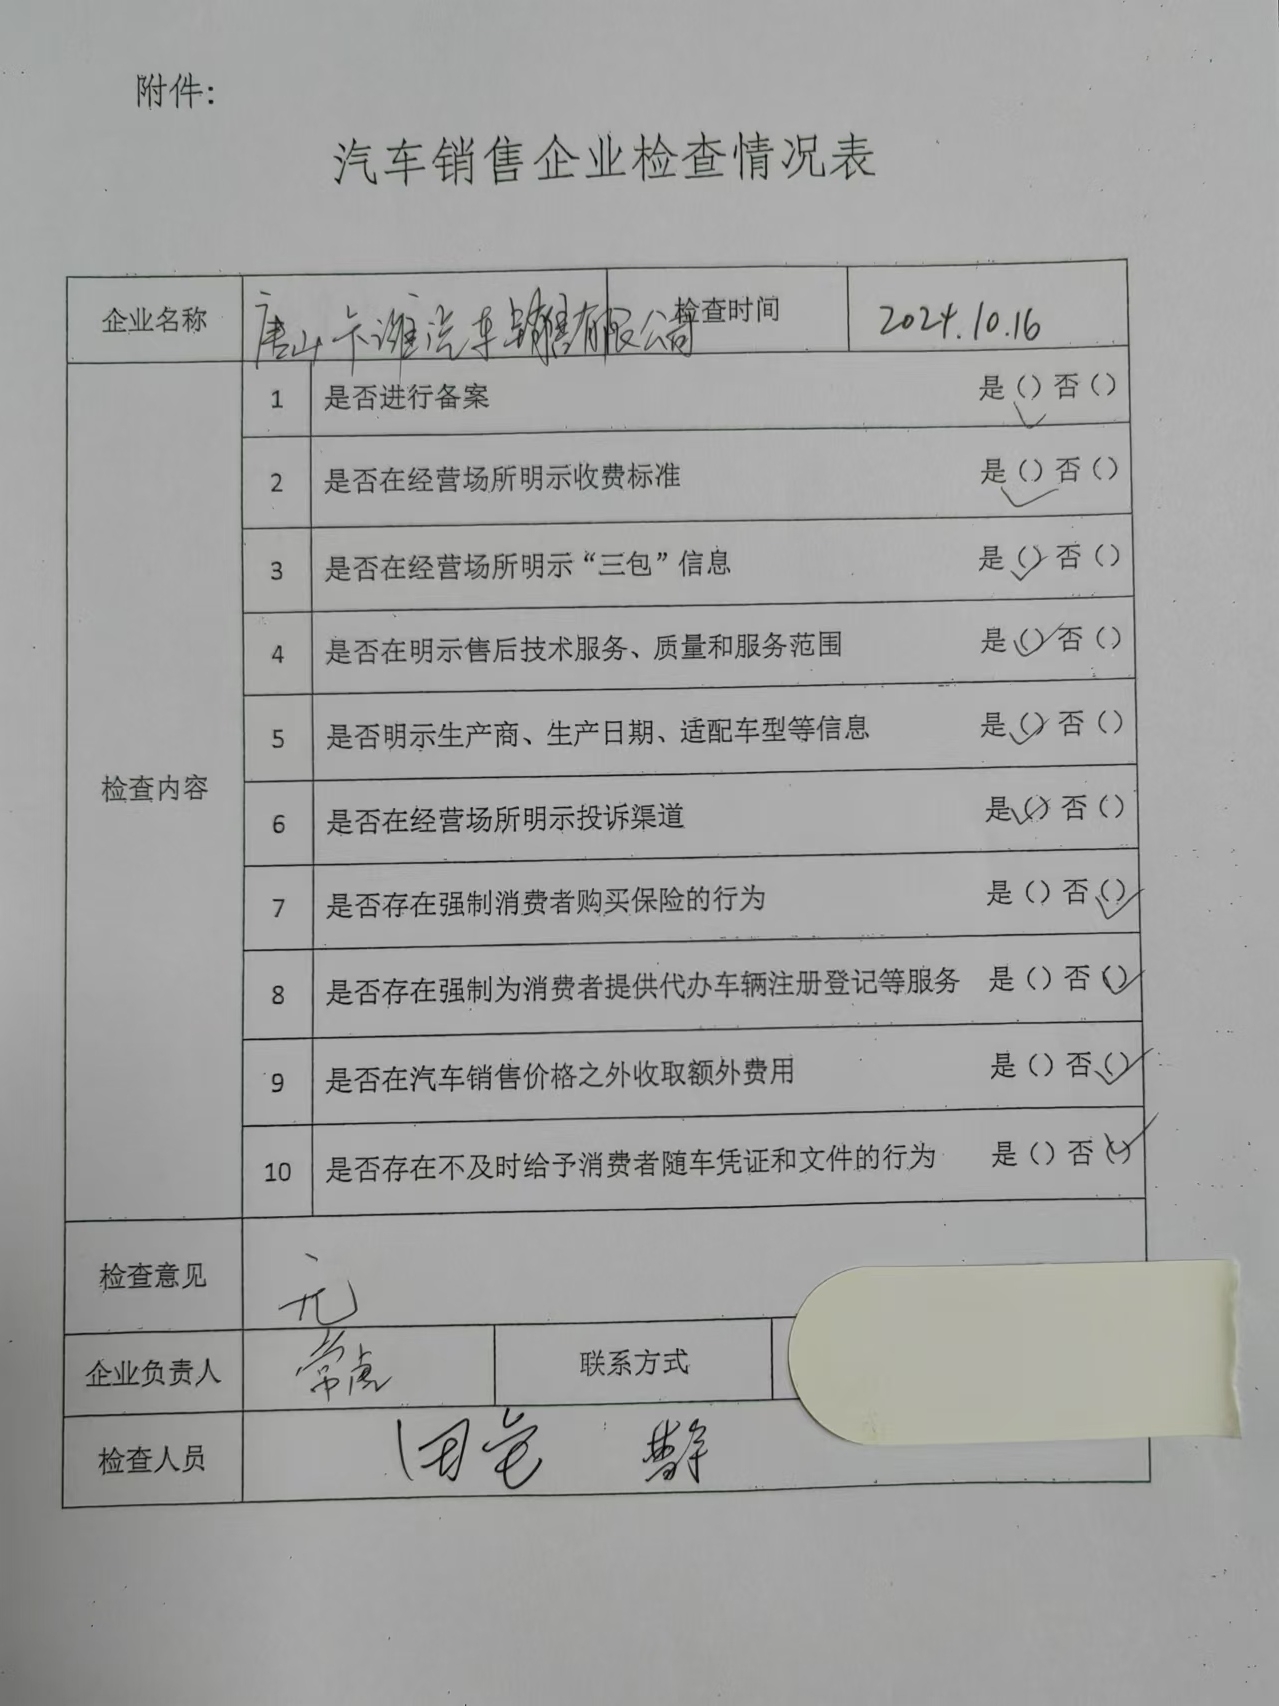 附件:
汽车销售企业检查情况表
企业名称 唐山卡潍汽车销售有限公司 检查时间 2024.10.16
检查内容
1 是否进行备案 是(✓) 否()
2 是否在经营场所明示收费标准 是(✓) 否()
3 是否在经营场所明示“三包”信息 是(✓) 否()
4 是否在明示售后技术服务、质量和服务范围 是(✓) 否()
5 是否明示生产商、生产日期、适配车型等信息 是(✓) 否()
6 是否在经营场所明示投诉渠道 是(✓) 否()
7 是否存在强制消费者购买保险的行为 是() 否(✓)
8 是否存在强制为消费者提供代办车辆注册登记等服务 是() 否(✓)
9 是否在汽车销售价格之外收取额外费用 是() 否(✓)
10 是否存在不及时给予消费者随车凭证和文件的行为 是() 否(✓)
检查意见 无
企业负责人 常虎 联系方式
检查人员